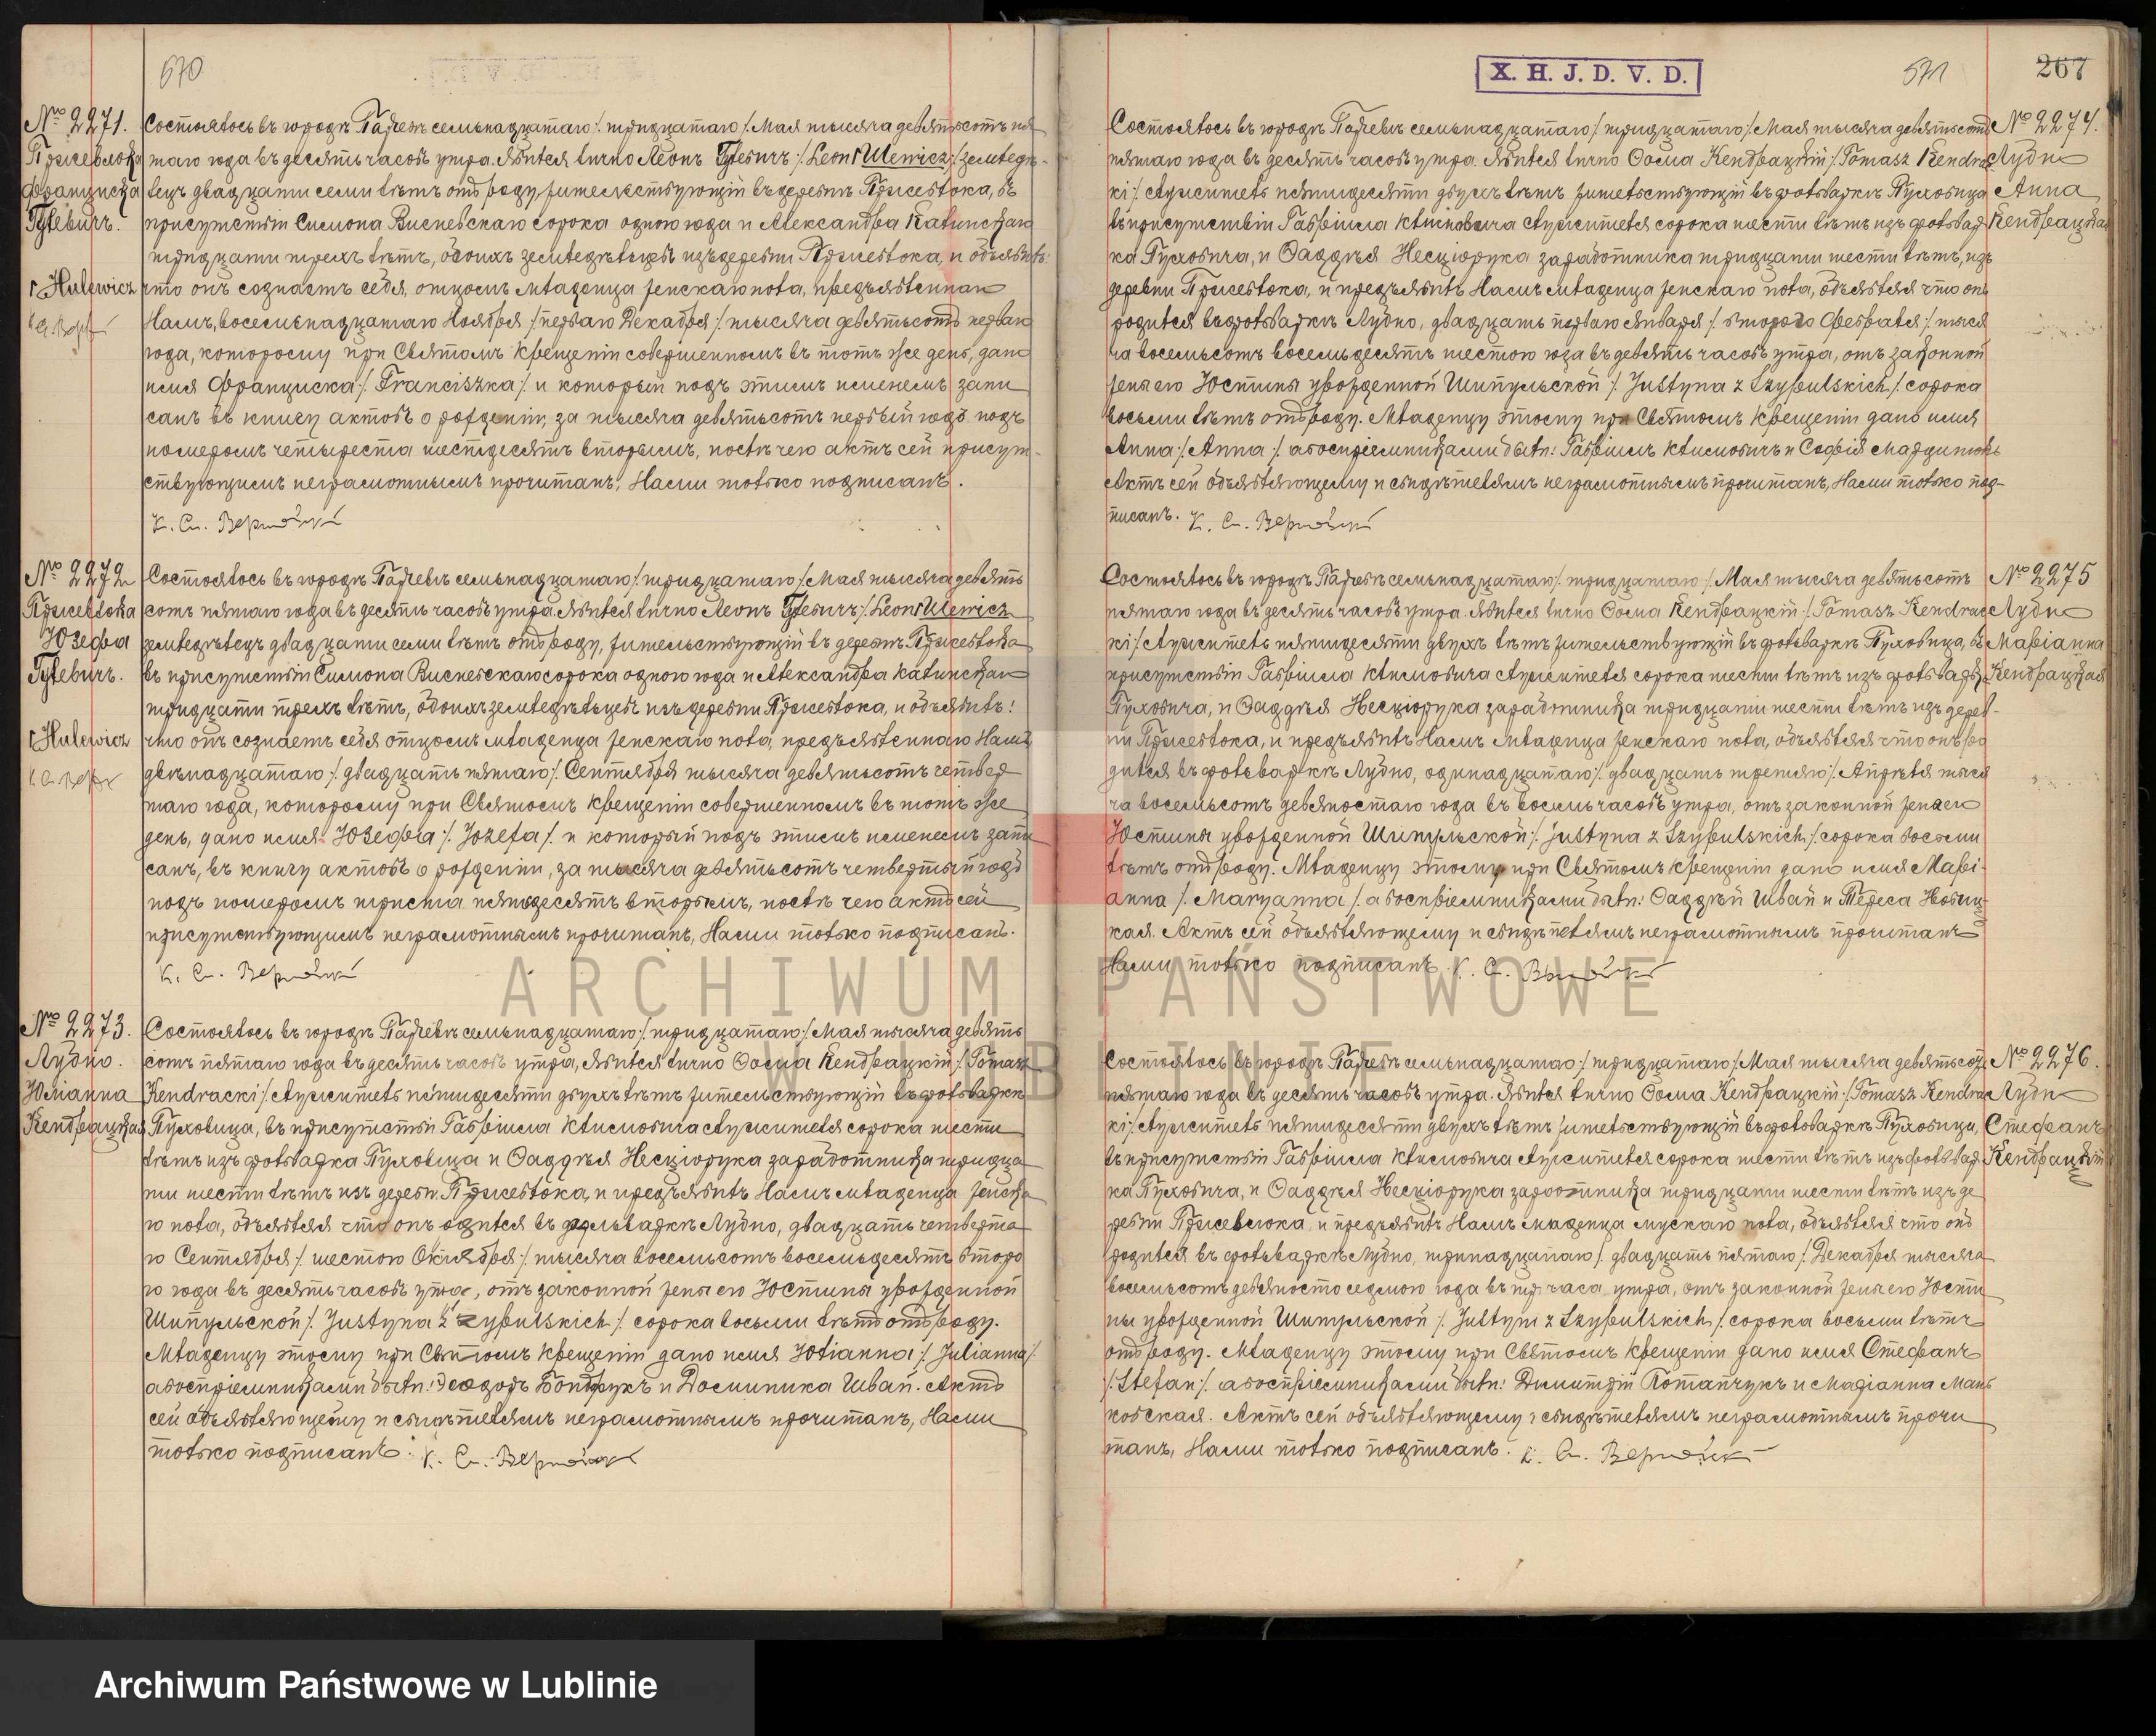 570
№ 2271.
Пржевлока
Франциска
Гулевичъ.
Hulewicz
Состоялось въ городѣ Парчевѣ семьнадцатаго /: тридцатаго :/ Мая тысяча девятьсотъ пя-
таго года въ десять часовъ утра. Явился лично Леонъ Гулевичъ /: Leon Hulewicz :/ земледѣ-
лецъ двадцати семи лѣтъ отъ роду, жительствующій въ деревнѣ Пржевлока, въ
присутствіи Симона Висневскаго сорока одного года и Александра Калинскаго
тридцати трехъ лѣтъ, обоихъ земледѣльцевъ изъ деревни Пржевлока, и объявилъ:
что онъ сознаетъ себя, отцомъ младенца женскаго пола, предъявленнаго
Намъ, восемьнадцатаго Ноября /: перваго Декабря :/ тысяча девятьсотъ перваго
года, которому при Святомъ Крещеніи совершенномъ въ тотъ же день, дано
имя Франциска /: Franciszka :/ и который подъ этимъ именемъ запи
санъ въ книгу актовъ о рожденіи, за тысяча девятьсотъ первый годъ подъ
номеромъ четыреста шестдесятъ вторымъ, послѣ чего актъ сей присут-
ствующимъ неграмотнымъ прочитанъ, Нами только подписанъ.
№ 2272
Пржевлока
Юзефа
Гулевичъ.
Hulewicz
Состоялось въ городѣ Парчевѣ семьнадцатаго /: тридцатаго :/ Мая тысяча девять
сотъ пятаго года въ десять часовъ утра. Явился лично Леонъ Гулевичъ /: Leon Hulewicz
земледѣлецъ двадцати семи лѣтъ отъ роду, жительствующій въ деревнѣ Пржевлока
въ присутствіи Симона Висневскаго сорока одного года и Александра Калинскаго
тридцати трехъ лѣтъ, обоихъ земледѣльцевъ изъ деревни Пржевлока, и объявилъ:
что онъ сознаетъ себя отцомъ младенца женскаго пола, предъявленнаго Намъ
двѣнадцатаго /: двадцать пятаго :/ Сентября тысяча девятьсотъ четвер
таго года, которому при Святомъ Крещеніи совершенномъ въ тотъ же
день, дано имя Юзефа /: Jozefa :/ и который подъ этимъ именемъ запи
санъ, въ книгу актовъ о рожденіи, за тысяча девятьсотъ четвертый годъ
подъ номеромъ триста пятьдесятъ вторымъ, послѣ чего актъ сей
присутствующимъ неграмотнымъ прочитанъ, Нами только подписанъ.
№ 2273.
Лубно.
Юлианна
Кендрацкая
Состоялось въ городѣ Парчевѣ семьнадцатаго /: тридцатаго :/ Мая тысяча девять
сотъ пятаго года въ десять часовъ утра, Явился лично Ѳома Кендрацкій /: Tomasz
Kendracki :/ служитель пятидесяти двухъ лѣтъ жительствующій въ фольваркѣ
Пуховица, въ присутствіи Гавріила Климовича служителя сорока шести
лѣтъ изъ фольварка Пуховица и Ѳаддея Несціорука заработника тридца
ти шести лѣтъ изъ дерев. Пржевлока, и предъявилъ Намъ младенца женска
го пола, объявляя что онъ одился въ фольваркѣ Лубно, двадцать четверта
го Сентября /: шестого Октября :/ тысяча восемьсотъ восемьдесятъ второ
го года въ десять часовъ утра, отъ законной жены его Юстины урожденной
Шипульской /: Justyna z Szypulskich :/ сорока восьми лѣтъ отъ роду.
Младенцу этому при Святомъ Крещеніи дано имя Юлианна /: Julianna :/
а воспріемниками были: Ѳеодоръ Бондрукъ и Доминика Швай. Актъ
сей объявляющему и свидѣтелямъ неграмотнымъ прочитанъ, Нами
только подписанъ.
X. H. J. D. V. D.
571
267
№ 2274.
Лубно
Анна
Кендрацкая
Состоялось въ городѣ Парчевѣ семьнадцатаго /: тридцатаго :/ Мая тысяча девятьсотъ
пятаго года въ десять часовъ утра. Явился лично Ѳома Кендрацкій /: Tomasz Kendrac
ki :/ служитель пятидесяти двухъ лѣтъ жительствующій въ фольваркѣ Пуховица
въ присутствіи Гавріила Климовича служителя сорока шести лѣтъ изъ фольвар
ка Пуховича, и Ѳаддея Несціорука заработника тридцати шести лѣтъ, изъ
деревни Пржевлока, и предъявилъ Намъ младенца женскаго пола, объявляя что онъ
родился въ фольваркѣ Лубно, двадцать перваго января /: второго Февраля :/ тыся
ча восемьсотъ восемьдесятъ шестого года въ девять часовъ утра, отъ законной
жены его Юстины урожденной Шипульской /: Justyna z Szypulskich :/ сорока
восьми лѣтъ отъ роду. Младенцу этому при Святомъ Крещеніи дано имя
Анна /: Anna :/ а воспріемниками были: Гавріилъ Климовичъ и Софія
Актъ сей объявляющему и свидѣтелямъ неграмотнымъ прочитанъ, Нами только под-
писанъ.
№ 2275
Лубно
Маріанна
Кендрацкая
Состоялось въ городѣ Парчевѣ семьнадцатаго /: тридцатаго :/ Мая тысяча девятьсотъ
пятаго года въ десять часовъ утра. Явился лично Ѳома Кендрацкій /: Tomasz Kendrac
ki :/ служитель пятидесяти двухъ лѣтъ жительствующій въ фольваркѣ Пуховица, въ
присутствіи Гавріила Климовича служителя сорока шести лѣтъ изъ фольварка
Пуховича, и Ѳаддея Несціорука заработника тридцати шести лѣтъ изъ дерев-
ни Пржевлока, и предъявилъ Намъ младенца женскаго пола, объявляя что онъ ро
дился въ фольваркѣ Лубно, одинадцатаго /: двадцать третяго :/ Апрѣля тыся
ча восемьсотъ девяностаго года въ восемь часовъ утра, отъ законной жены его
Юстины урожденной Шипульской /: Justyna z Szypulskich :/ сорока восьми
лѣтъ отъ роду. Младенцу этому при Святомъ Крещеніи дано имя Марі-
анна /: Maryanna :/ а воспріемниками были: Ѳаддей Швай и Тереса Новиц-
кая. Актъ сей объявляющему и свидѣтелямъ неграмотнымъ прочитанъ
Нами только подписанъ.
№ 2276.
Лубно
Стефанъ
Кендрацкій
Состоялось въ городѣ Парчевѣ семьнадцатаго /: тридцатаго :/ Мая тысяча девятьсотъ
пятаго года въ десять часовъ утра. Явился лично Ѳома Кендрацкій /: Tomasz Kendrac
ki :/ служитель пятидесяти двухъ лѣтъ жительствующій въ фольваркѣ Пуховица,
въ присутствіи Гавріила Климовича служителя сорока шести лѣтъ изъ фольвар
ка Пуховича, и Ѳаддея Несціорука заработника тридцати шести лѣтъ изъ де
ревни Пржевлока, и предъявилъ Намъ младенца мускаго пола, объявляя что онъ
родился въ фольваркѣ Лубно, тринадцатаго /: двадцать пятаго :/ Декабря тысяча
восемьсотъ девяносто седмого года въ три часа утра, отъ законной жены его Юсти
ны урожденной Шипульской /: Justyn z Szypulskich :/ сорока восьми лѣтъ
отъ роду. Младенцу этому при Святомъ Крещеніи дано имя Стефанъ
/: Stefan :/ а воспріемниками были: Димитрій Романчукъ и Маріанна Мань
ковская. Актъ сей объявляющему и свидѣтелямъ неграмотнымъ прочи
танъ, Нами только подписанъ.
ARCHIWUM PAŃSTWOWE
W LUBLINIE
Archiwum Państwowe w Lublinie